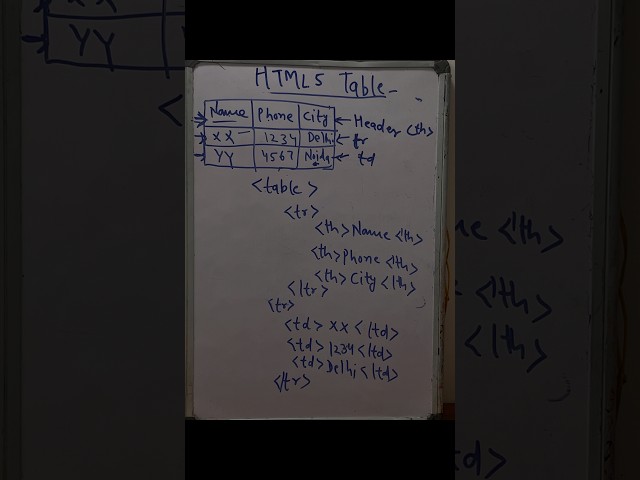 HTML5 Table
Name Phone City ← Header <th>
XX 1234 Delhi ← tr
YY 4567 Noida ← td
<table>
<tr>
<th> Name </th>
<th> Phone </th>
<th> City </th>
</tr>
<tr>
<td> XX </td>
<td> 1234 </td>
<td> Delhi </td>
</tr>